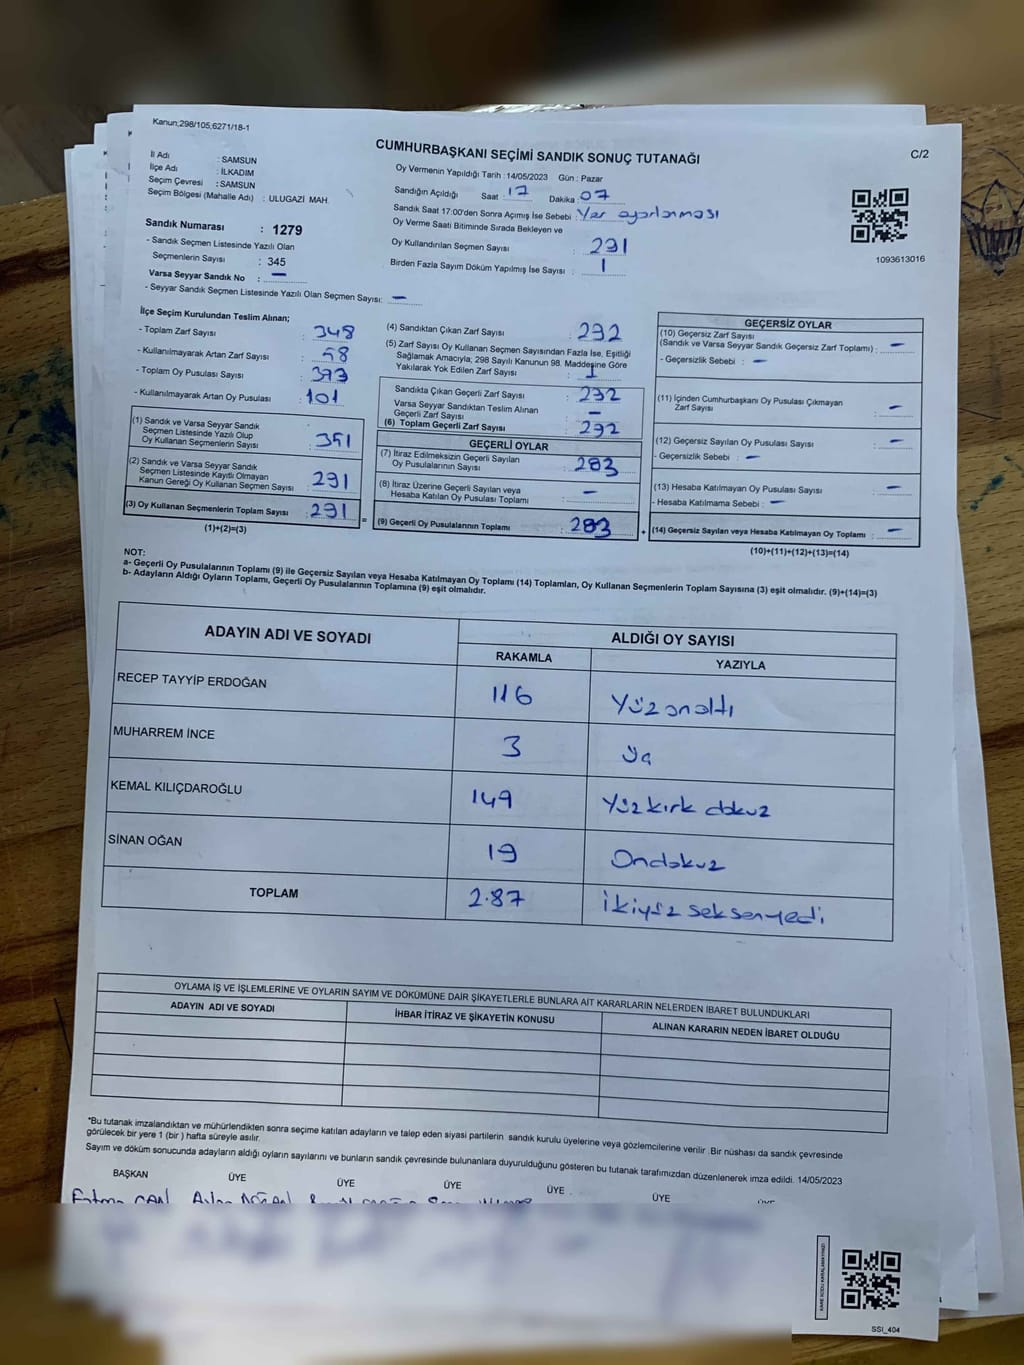 Kanun;298/105;6271/18-1
CUMHURBAŞKANI SEÇİMİ SANDIK SONUÇ TUTANAĞI
C/2
İl Adı : SAMSUN
İlçe Adı : İLKADIM
Seçim Çevresi : SAMSUN
Seçim Bölgesi (Mahalle Adı) : ULUGAZİ MAH.
Oy Vermenin Yapıldığı Tarih : 14/05/2023 Gün : Pazar
Sandığın Açıldığı Saat : 17 Dakika : 07
Sandık Saat 17:00'den Sonra Açımış İse Sebebi : Yer ayarlanması
Oy Verme Saati Bitiminde Sırada Bekleyen ve
Oy Kullandırılan Seçmen Sayısı : 291
Birden Fazla Sayım Döküm Yapılmış İse Sayısı : 1
1093613016
Sandık Numarası : 1279
- Sandık Seçmen Listesinde Yazılı Olan
Seçmenlerin Sayısı : 345
Varsa Seyyar Sandık No : —
- Seyyar Sandık Seçmen Listesinde Yazılı Olan Seçmen Sayısı: —
İlçe Seçim Kurulundan Teslim Alınan;
- Toplam Zarf Sayısı : 348
- Kullanılmayarak Artan Zarf Sayısı : 58
- Toplam Oy Pusulası Sayısı : 393
- Kullanılmayarak Artan Oy Pusulası : 101
(1) Sandık ve Varsa Seyyar Sandık
Seçmen Listesinde Yazılı Olup
Oy Kullanan Seçmenlerin Sayısı : 351
(2) Sandık ve Varsa Seyyar Sandık
Seçmen Listesinde Kayıtlı Olmayan
Kanun Gereği Oy Kullanan Seçmen Sayısı : 291
(3) Oy Kullanan Seçmenlerin Toplam Sayısı : 291
(1)+(2)=(3)
(4) Sandıktan Çıkan Zarf Sayısı : 292
(5) Zarf Sayısı Oy Kullanan Seçmen Sayısından Fazla İse, Eşitliği
Sağlamak Amacıyla; 298 Sayılı Kanunun 98. Maddesine Göre
Yakılarak Yok Edilen Zarf Sayısı : 1
Sandıkta Çıkan Geçerli Zarf Sayısı : 292
Varsa Seyyar Sandıktan Teslim Alınan
Geçerli Zarf Sayısı : —
(6) Toplam Geçerli Zarf Sayısı : 292
GEÇERLİ OYLAR
(7) İtiraz Edilmeksizin Geçerli Sayılan
Oy Pusulalarının Sayısı : 283
(8) İtiraz Üzerine Geçerli Sayılan veya
Hesaba Katılan Oy Pusulası Toplamı : —
(9) Geçerli Oy Pusulalarının Toplamı : 283
GEÇERSİZ OYLAR
(10) Geçersiz Zarf Sayısı
(Sandık ve Varsa Seyyar Sandık Geçersiz Zarf Toplamı) : —
- Geçersizlik Sebebi : —
(11) İçinden Cumhurbaşkanı Oy Pusulası Çıkmayan
Zarf Sayısı : —
(12) Geçersiz Sayılan Oy Pusulası Sayısı : —
- Geçersizlik Sebebi : —
(13) Hesaba Katılmayan Oy Pusulası Sayısı : —
- Hesaba Katılmama Sebebi : —
(14) Geçersiz Sayılan veya Hesaba Katılmayan Oy Toplamı : —
(10)+(11)+(12)+(13)=(14)
NOT:
a- Geçerli Oy Pusulalarının Toplamı (9) ile Geçersiz Sayılan veya Hesaba Katılmayan Oy Toplamı (14) Toplamları, Oy Kullanan Seçmenlerin Toplam Sayısına (3) eşit olmalıdır. (9)+(14)=(3)
b- Adayların Aldığı Oyların Toplamı, Geçerli Oy Pusulalarının Toplamına (9) eşit olmalıdır.
ADAYIN ADI VE SOYADI ALDIĞI OY SAYISI
RAKAMLA YAZIYLA
RECEP TAYYİP ERDOĞAN 116 Yüzonaltı
MUHARREM İNCE 3 Üç
KEMAL KILIÇDAROĞLU 149 Yüzkırk dokuz
SİNAN OĞAN 19 Ondokuz
TOPLAM 2.87 İkiyüz seksenyedi
OYLAMA İŞ VE İŞLEMLERİNE VE OYLARIN SAYIM VE DÖKÜMÜNE DAİR ŞİKAYETLERLE BUNLARA AİT KARARLARIN NELERDEN İBARET BULUNDUKLARI
ADAYIN ADI VE SOYADI İHBAR İTİRAZ VE ŞİKAYETİN KONUSU ALINAN KARARIN NEDEN İBARET OLDUĞU
*Bu tutanak imzalandıktan ve mühürlendikten sonra seçime katılan adayların ve talep eden siyasi partilerin sandık kurulu üyelerine veya gözlemcilerine verilir. Bir nüshası da sandık çevresinde
görülecek bir yere 1 (bir) hafta süreyle asılır.
Sayım ve döküm sonucunda adayların aldığı oyların sayılarını ve bunların sandık çevresinde bulunanlara duyurulduğunu gösteren bu tutanak tarafımızdan düzenlenerek imza edildi. 14/05/2023
BAŞKAN ÜYE ÜYE ÜYE ÜYE ÜYE ÜYE
SSİ_404